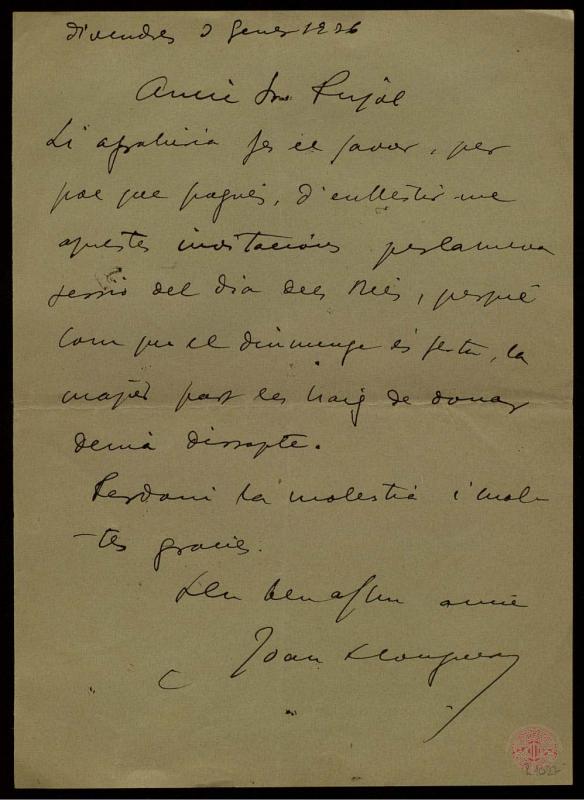 divendres 2 Gener 1926
Amic Sr. Pujol
Li agrahiria fes el favor, per
poc que pogués, d'enllestir-me
aquestes invitacións per la meva
sessió del dia dels Reis, perqué
com que el diumenge és festa, la
major part les haig de donar
demà dissapte.
Perdoni la molestia i mol-
-tes gracies.
Seu ben afm amic
Joan Llongueras